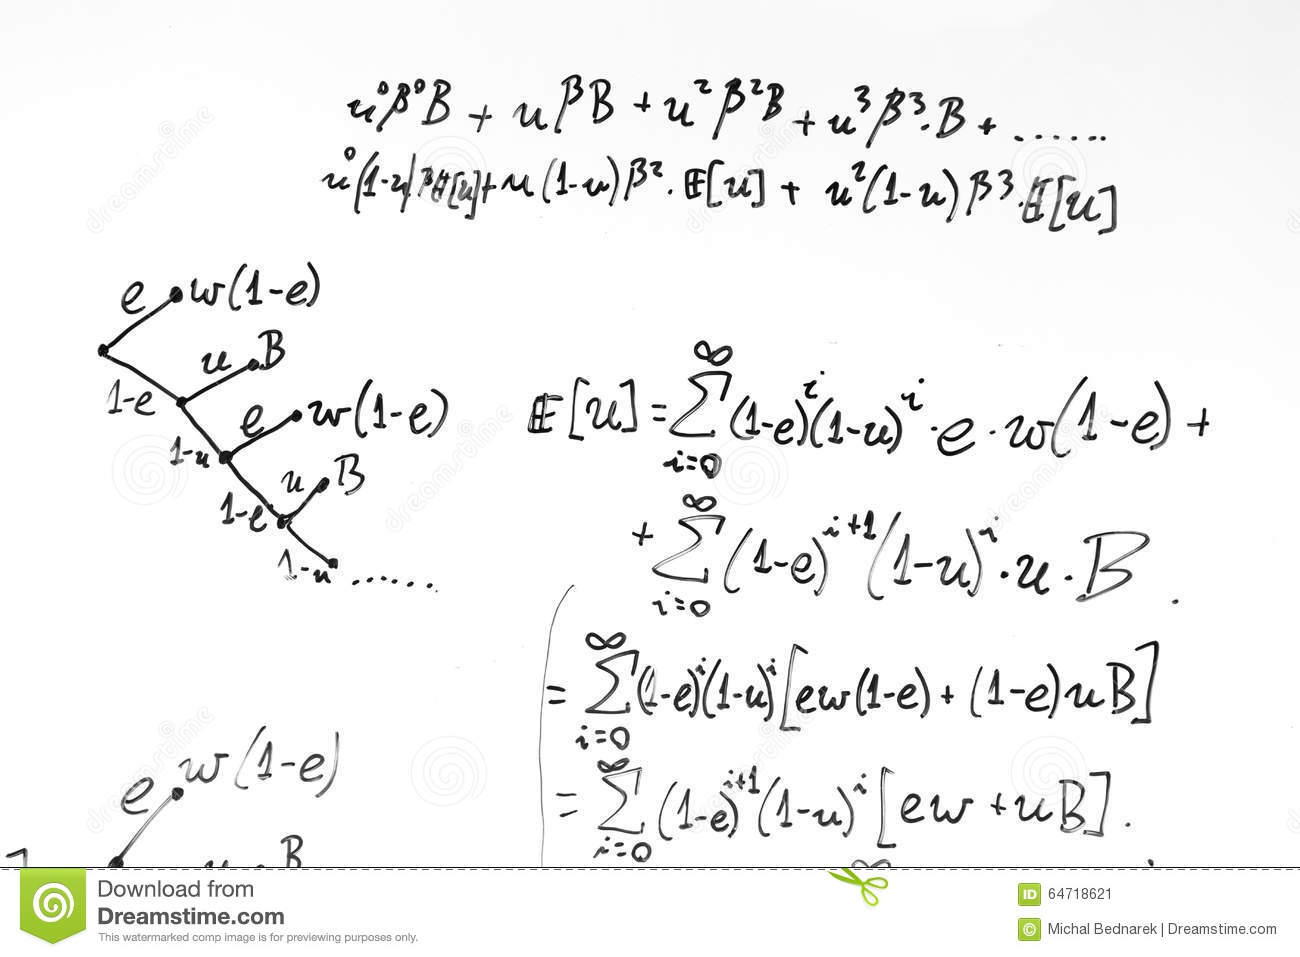 u⁰β⁰B + uβB + u²β²B + u³β³·B + ......
u⁰(1-u)β𝔼[u] + u(1-u)β²·𝔼[u] + u²(1-u)β³·𝔼[u]
e w(1-e)
u B
1-e
e w(1-e)
1-u
u B
1-e
1-u ......
𝔼[u] = ∑_{i=0}^{∞} (1-e)^i (1-u)^i · e · w(1-e) +
+ ∑_{i=0}^{∞} (1-e)^{i+1} (1-u)^i · u · B.
= ∑_{i=0}^{∞} (1-e)^i (1-u)^i [ew(1-e) + (1-e)uB]
= ∑_{i=0}^{∞} (1-e)^{i+1} (1-u)^i [ew + uB].
e w(1-e)
u B
∞
dreamstime
Download from
Dreamstime.com
This watermarked comp image is for previewing purposes only.
ID 64718621
© Michal Bednarek | Dreamstime.com